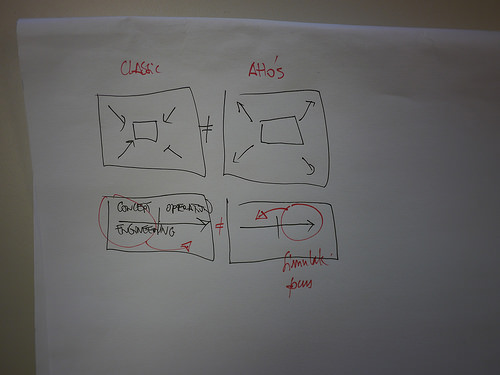 CLASSIC
AHO'S
≠
CONCEPT OPERATION
ENGINEERING
≠
focus